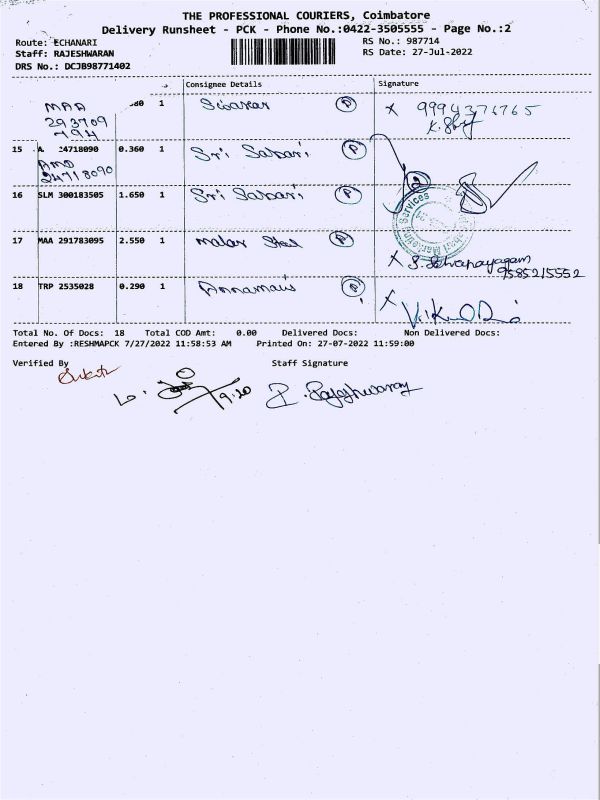 THE PROFESSIONAL COURIERS, Coimbatore
Delivery Runsheet - PCK - Phone No.:0422-3505555 - Page No.:2
Route: ECHANARI
RS No.: 987714
Staff: RAJESHWARAN
RS Date: 27-Jul-2022
DRS No.: DCJB98771402
Consignee Details Signature
MAA 293709 794 1 Sivakar P X 9994376765
15 24718090 0.360 1 Sri Sabari P
AMD 24718090
16 SLM 300183505 1.650 1 Sri Sabari P
Services
17 MAA 291783095 2.550 1 Malar P X 9585215552
18 TRP 2535028 0.290 1 P X
Total No. Of Docs: 18 Total COD Amt: 0.00 Delivered Docs: Non Delivered Docs:
Entered By :RESHMAPCK 7/27/2022 11:58:53 AM Printed On: 27-07-2022 11:59:00
Verified By Staff Signature
9:20